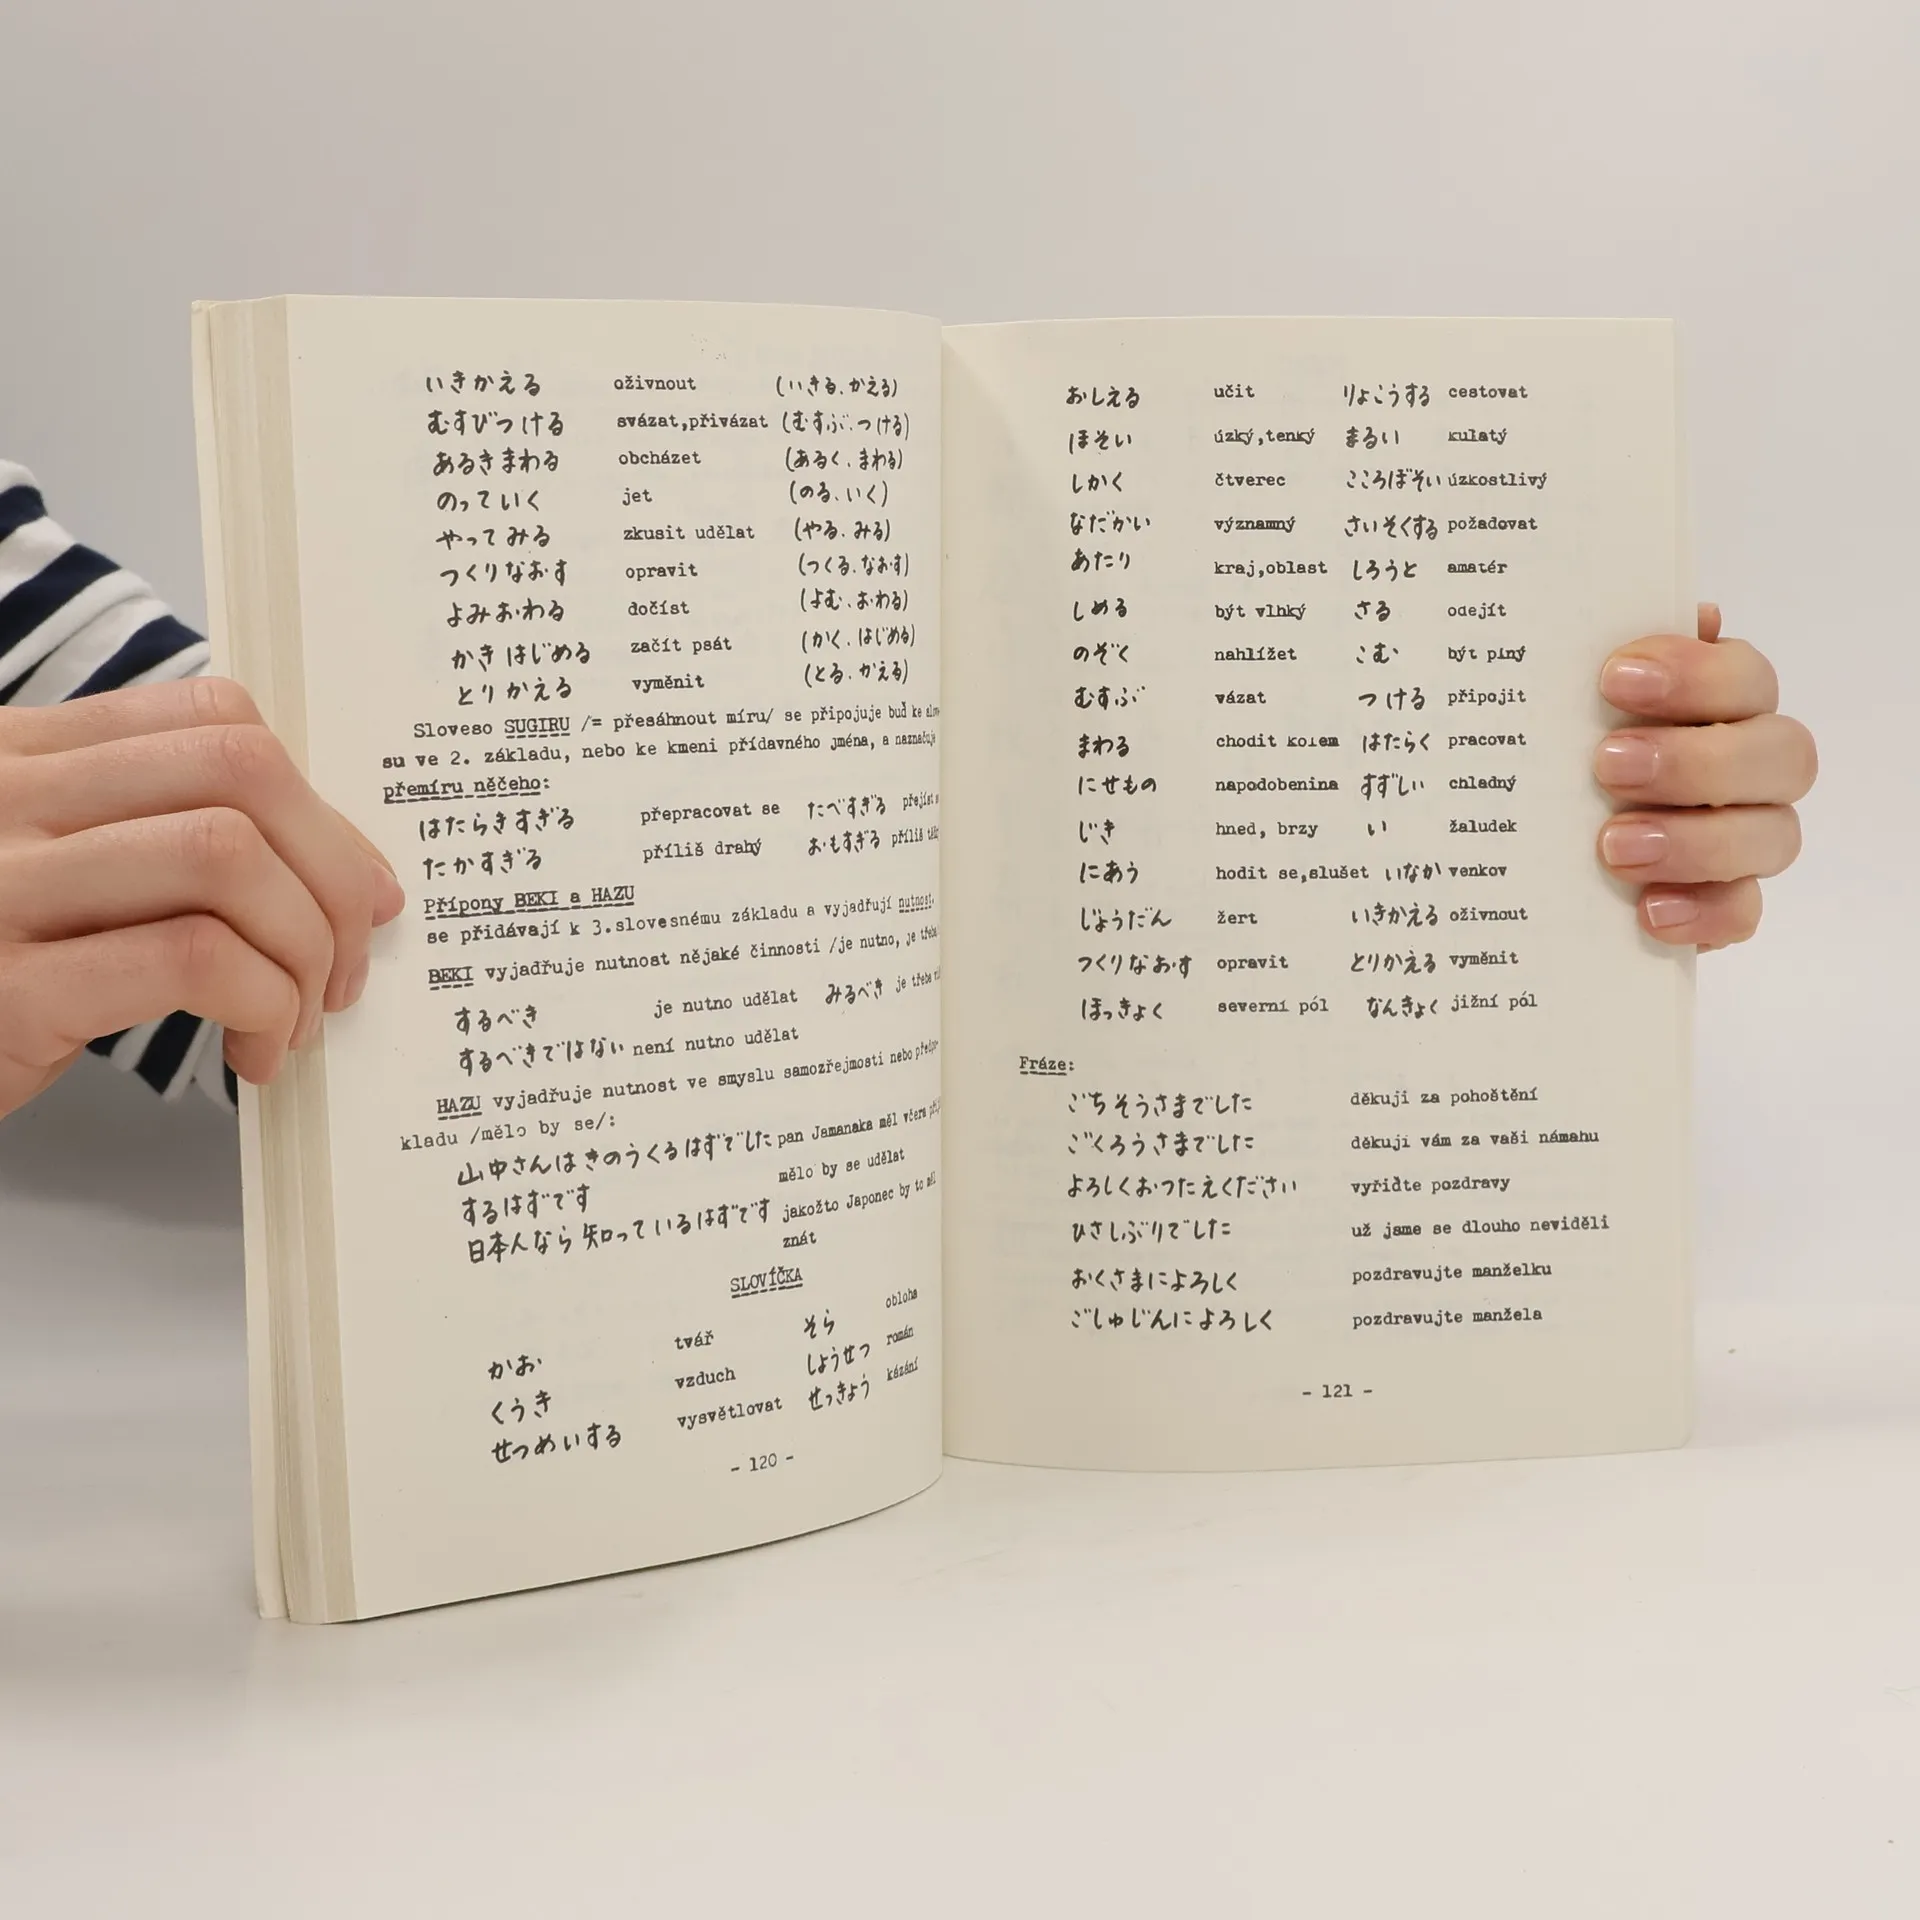 いきかえる oživnout (いきる、かえる)
むすびつける svázat,přivázat (むすぶ、つける)
あるきまわる obcházet (あるく、まわる)
のっていく jet (のる、いく)
やってみる zkusit udělat (やる、みる)
つくりなおす opravit (つくる、なおす)
よみおわる dočíst (よむ、おわる)
かきはじめる začít psát (かく、はじめる)
とりかえる vyměnit (とる、かえる)
Sloveso SUGIRU /= přesáhnout míru/ se připojuje buď ke
su ve 2. základu, nebo ke kmeni přídavného jména, a naznačuje
přemíru něčeho:
はたらきすぎる přepracovat se たべすぎる přejíst
たかすぎる příliš drahý おもすぎる příliš
Přípony BEKI a HAZU
se přidávají k 3.slovesnému základu a vyjadřují nutnost.
BEKI vyjadřuje nutnost nějaké činnosti /je nutno, je třeba
するべき je nutno udělat みるべき je třeba
するべきではない není nutno udělat
HAZU vyjadřuje nutnost ve smyslu samozřejmosti nebo předpo-
kladu /mělo by se/:
山中さんはきのうくるはずでした pan Jamanaka měl včera
するはずです mělo by se udělat
日本人なら知っているはずです jakožto Japonec by to měl
znát
SLOVÍČKA
かお tvář そら obloha
くうき vzduch しょうせつ román
せつめいする vysvětlovat せっきょう kázání
- 120 -
おしえる učit りょこうする cestovat
ほそい úzký,tenký まるい kulatý
しかく čtverec こころぼそい úzkostlivý
なだかい významný さいそくする požadovat
あたり kraj,oblast しろうと amatér
しめる být vlhký さる odejít
のぞく nahlížet こむ být plný
むすぶ vázat つける připojit
まわる chodit kolem はたらく pracovat
にせもの napodobenina すずしい chladný
じき hned, brzy い žaludek
にあう hodit se,slušet いなか venkov
じょうだん žert いきかえる oživnout
つくりなおす opravit とりかえる vyměnit
ほっきょく severní pól なんきょく jižní pól
Fráze:
ごちそうさまでした děkuji za pohoštění
ごくろうさまでした děkuji vám za vaši námahu
よろしくおつたえください vyřiďte pozdravy
ひさしぶりでした už jsme se dlouho neviděli
おくさまによろしく pozdravujte manželku
ごしゅじんによろしく pozdravujte manžela
- 121 -